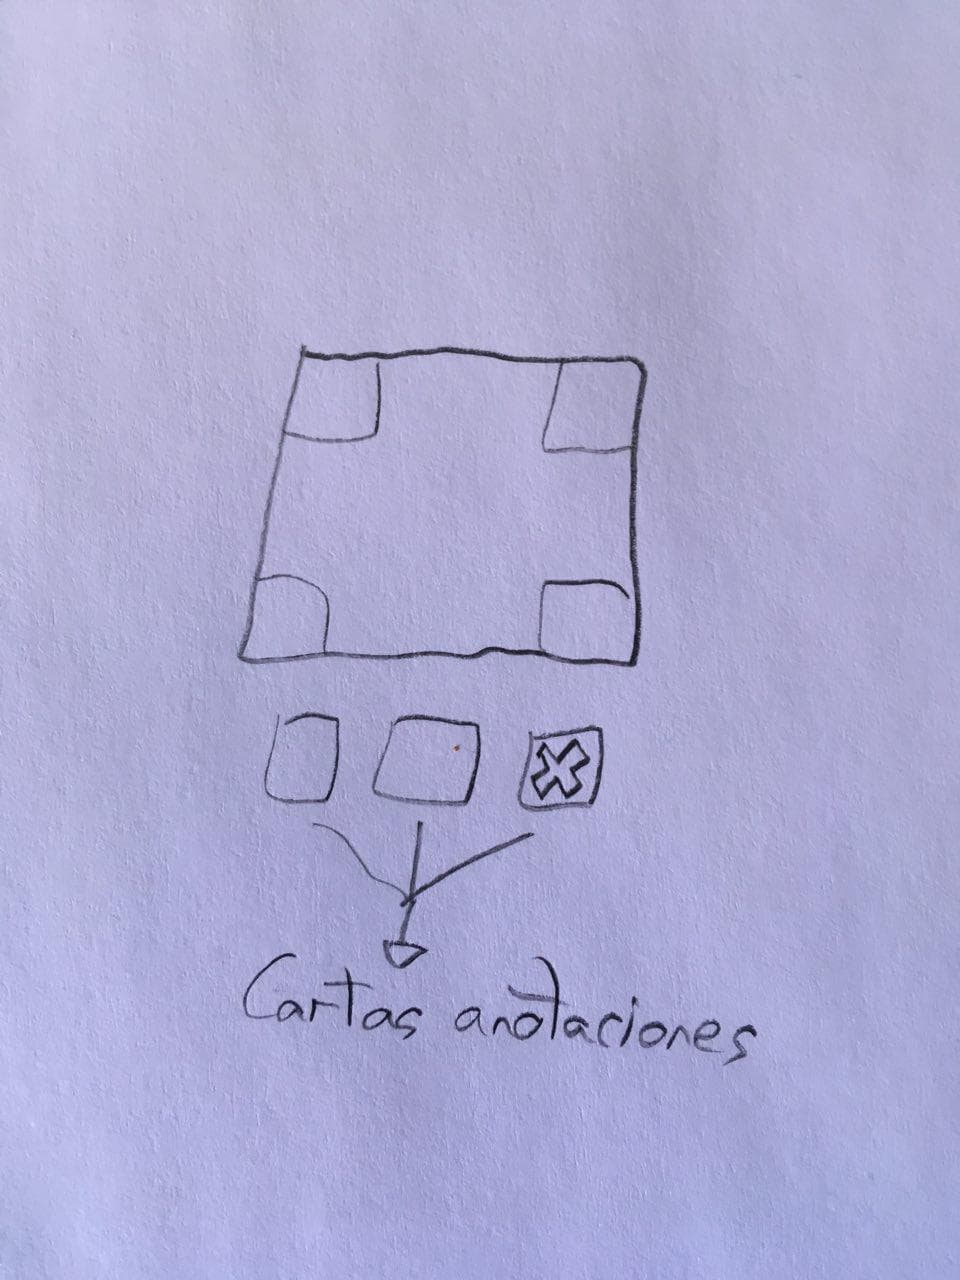 Cartas anotaciones